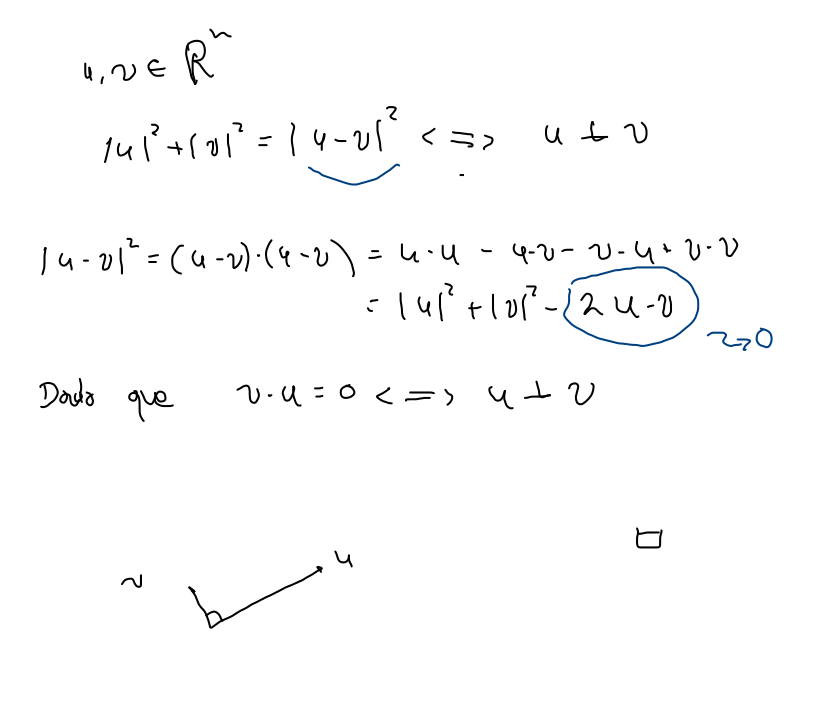 u, v ∈ ℝⁿ
|u|² + |v|² = |u - v|² <=> u ⊥ v
|u - v|² = (u - v)·(u - v) = u·u - u·v - v·u + v·v
= |u|² + |v|² - 2 u·v
→0
Dado que v·u = 0 <=> u ⊥ v
u
v